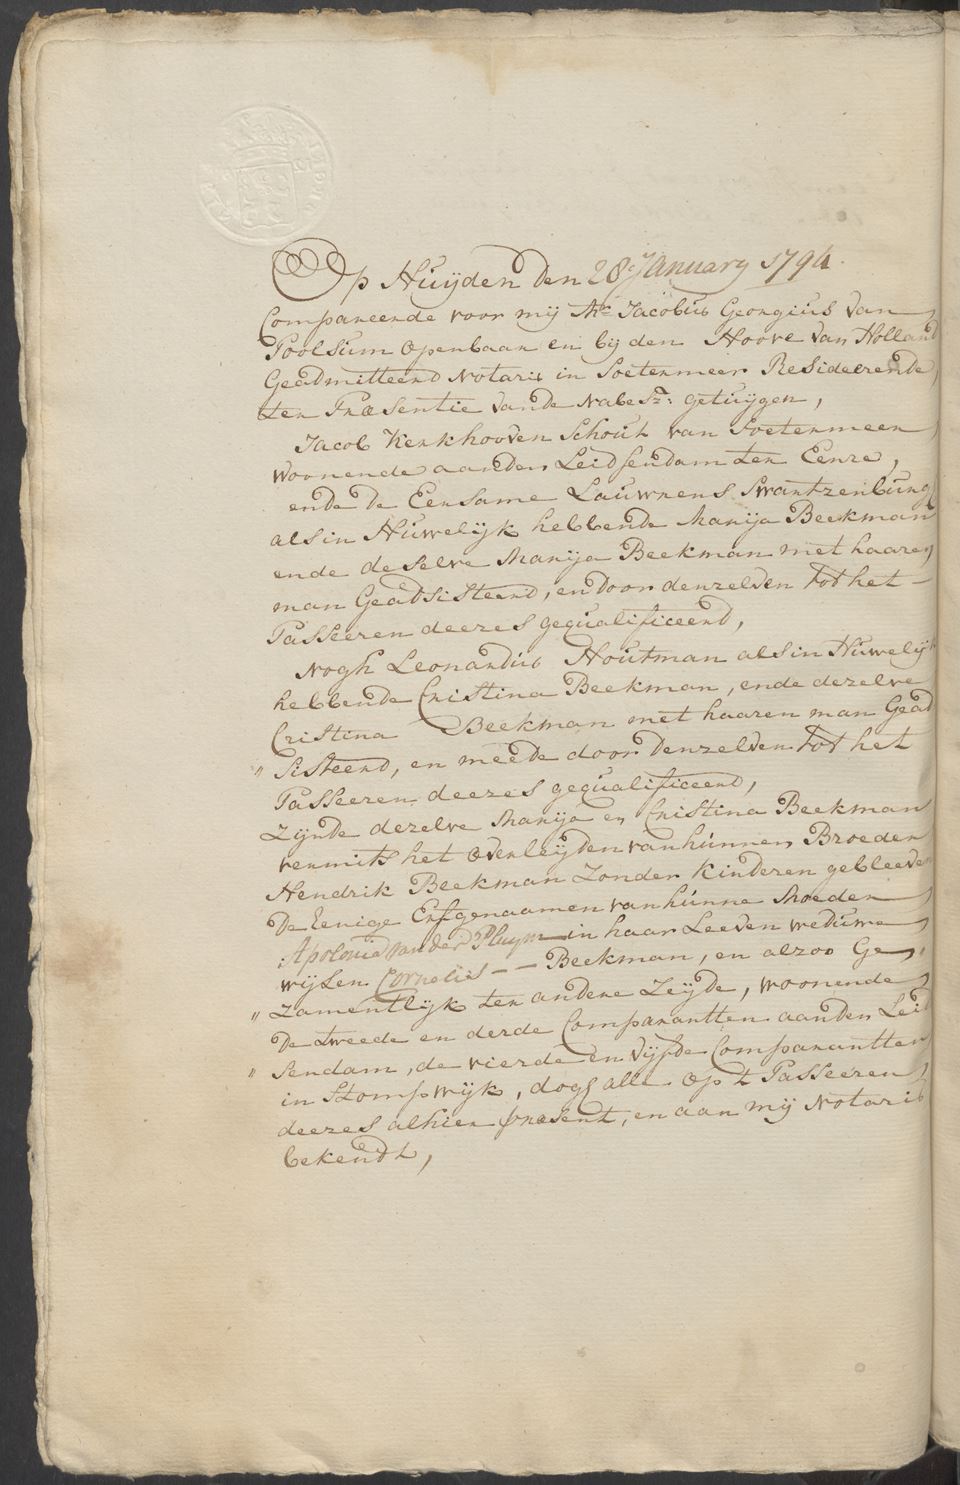 Op Huijden den 28 January 1794.
Compareerde voor mij Mr. Jacobus Georgius van
Poolsum openbaar en bij den Hoove van Holland
Geadmitteerd Notaris in Soetermeer Resideerende,
ter Præsentie vande Nabesz: getuijgen,
Jacob Kerkhooven Schout van Soetermeer
woonende aanden Leidsendam ter Eenre,
ende de Eersame Lauwrens Swartzenburg
als in Huwelijk hebbende Marija Beekman
ende deselve Marija Beekman met haaren
man Geadsisteerd, en door denzelven tot het
Passeeren deezes gequalificeerd,
Nogh Leonardus Houtman als in Huwelijk
hebbende Cristina Beekman, ende dezelve
Cristina Beekman met haaren man Gead
" sisteerd, en meede door denzelven tot het
Passeeren deezes gequalificeerd,
zijnde dezelve Marija en Cristina Beekman
vermits het overleijden van hunnen Broeder
Hendrik Beekman Zonder Kinderen gebleeven
De Eenige Erfgenaamen van hunne Moeder
Apolonia van der Pluym in haar Leeven weduwe
wijlen Cornelis - - Beekman, en alzoo Ge
" zamentlijk ter andere Zeijde, woonende
De tweede en derde Comparantten aanden Leid
" sendam, de vierde en vijfde Comparantten
in Stompwijk, dogh alle op t Passeeren
deezes alhier præsent, en aan mij Notaris
bekendt,